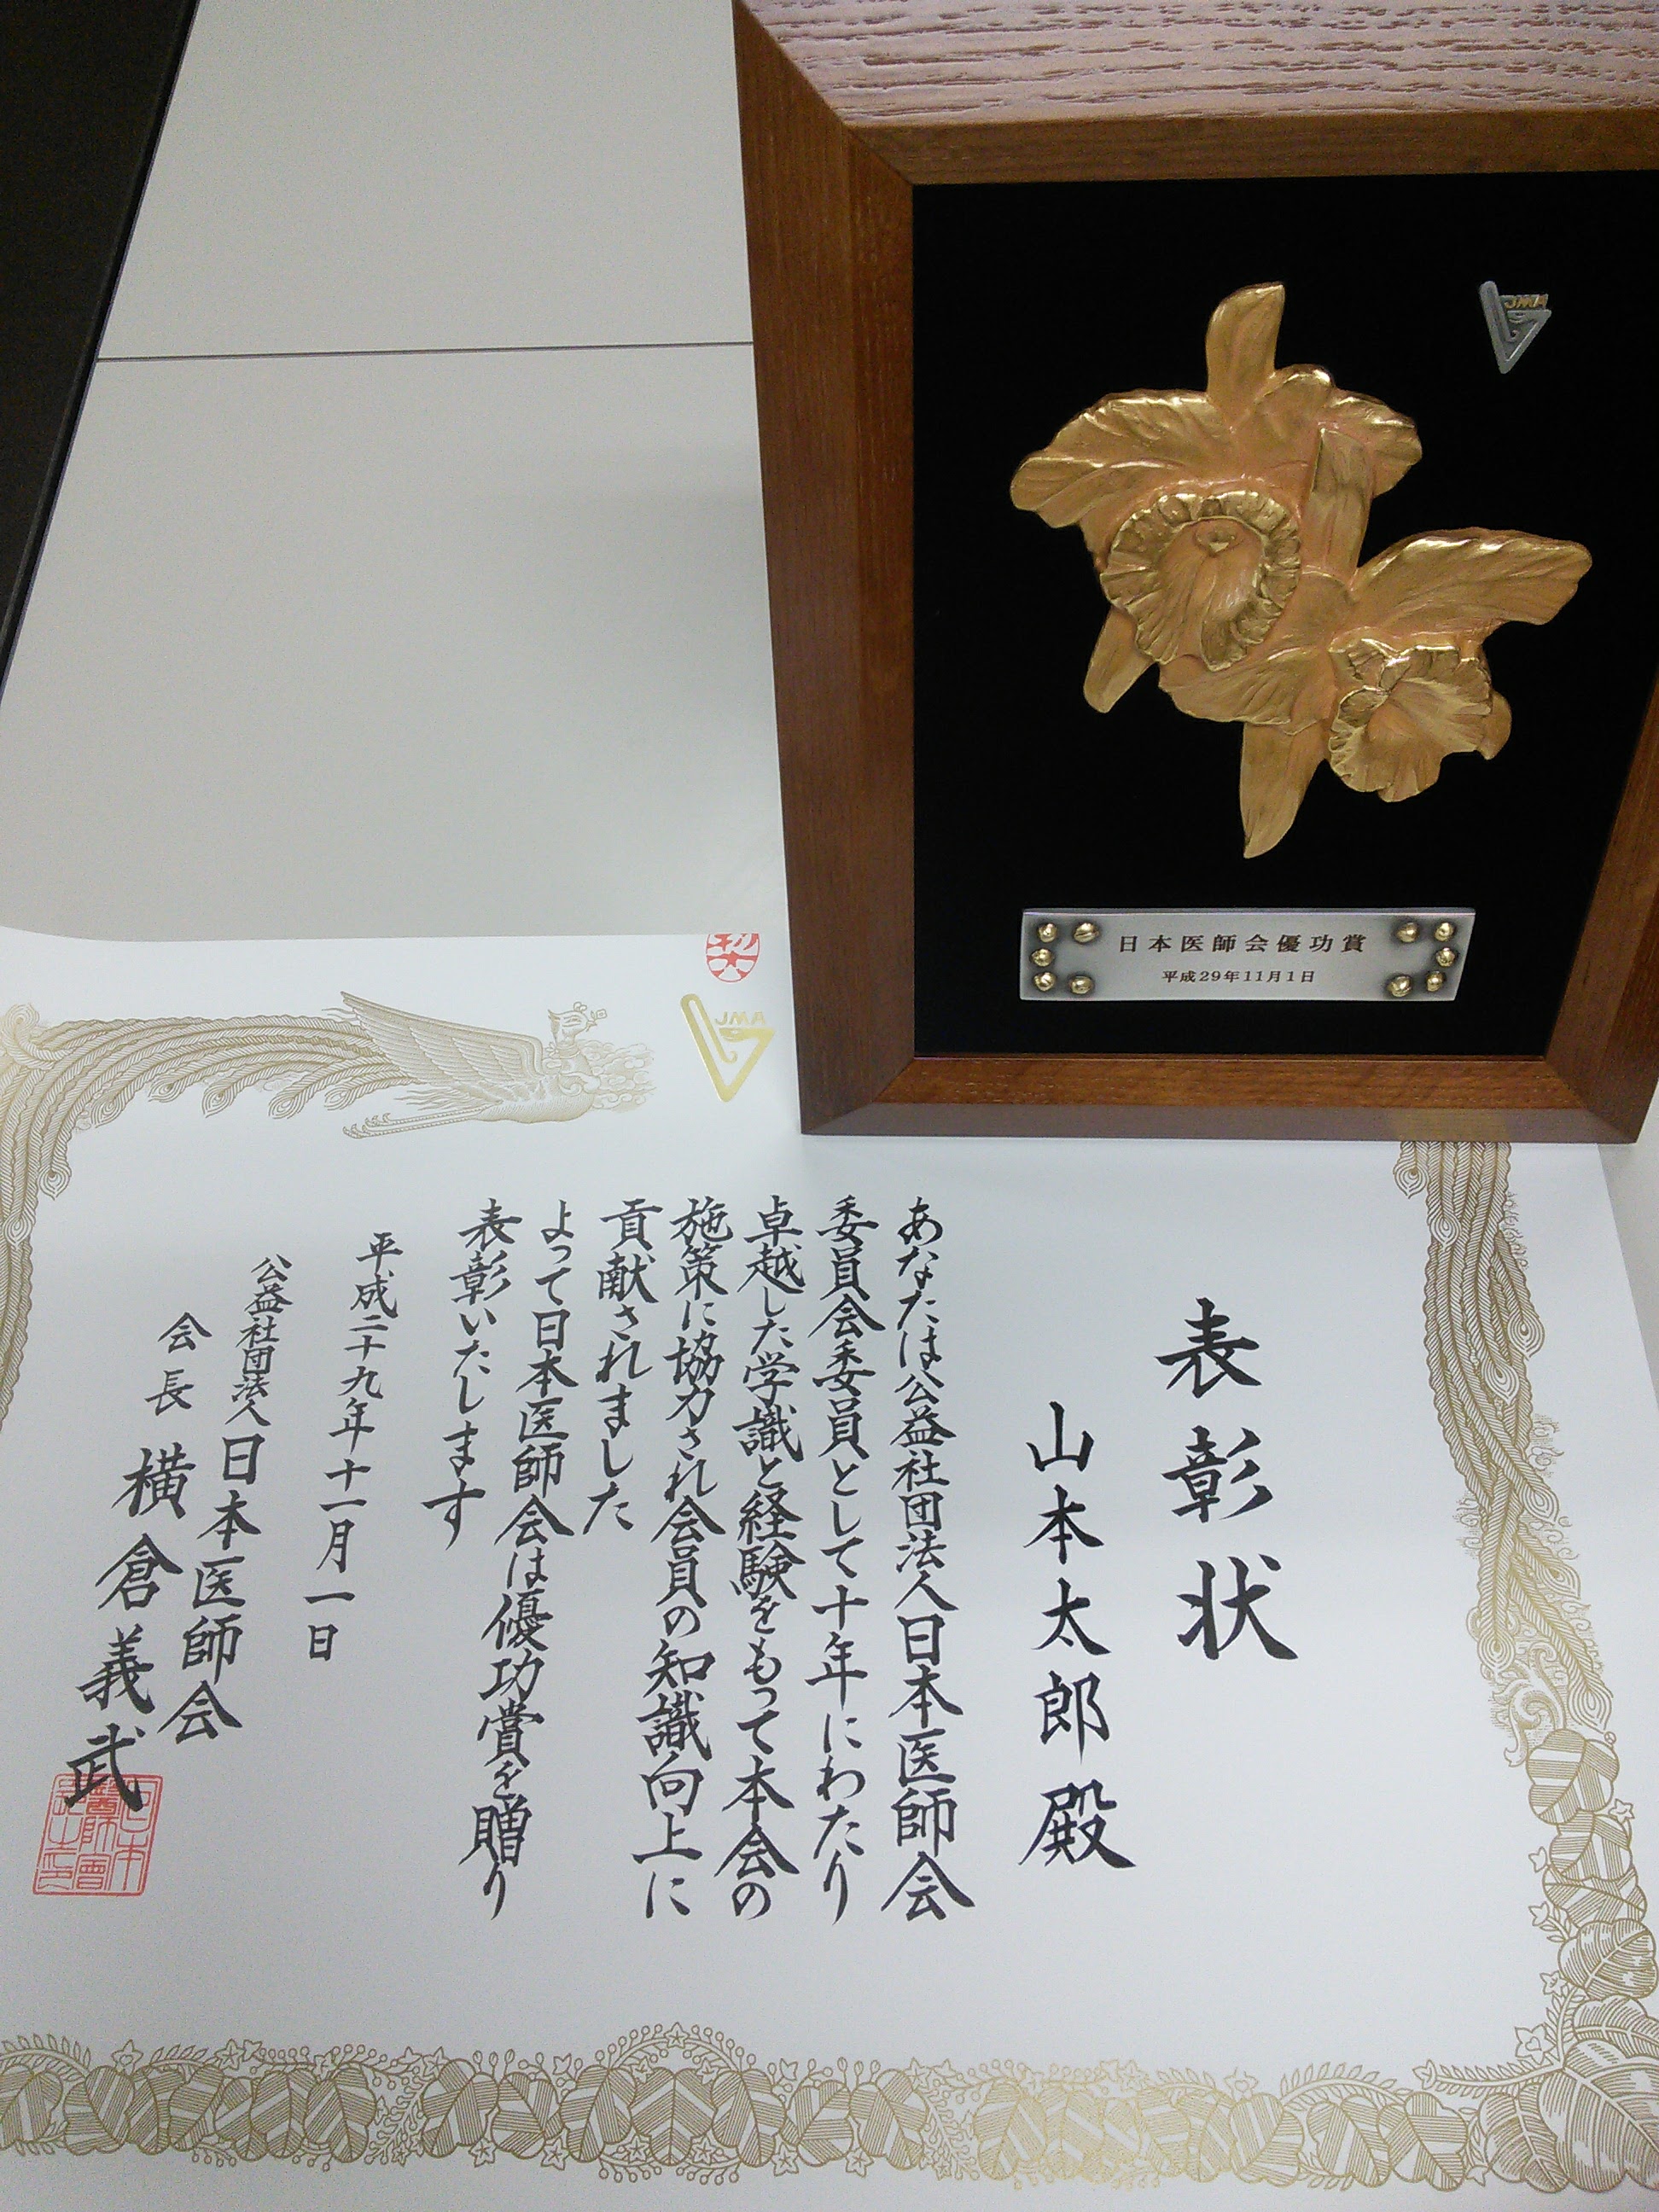 JMA
日本医師会優功賞
平成29年11月1日
JMA
表彰状
山本太郎殿
あなたは公益社団法人日本医師会
委員会委員として十年にわたり
卓越した学識と経験をもって本会の
施策に協力され会員の知識向上に
貢献されました
よって日本医師会は優功賞を贈り
表彰いたします
平成二十九年十一月一日
公益社団法人日本医師会
会長 横倉義武